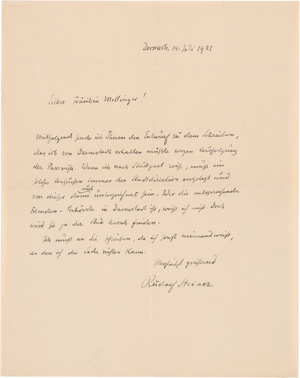 Dornach, 14. Juli 1921
Liebes Fräulein Mellinger!
Mitfolgend sende ich Ihnen den Entwurf zu dem Schreiben,
das ich von Darmstadt erhalten müßte wegen
der Passvisa. Wenn ich nach Stuttgart reise, muß ein
solches Ansuchen immer der Stadtdirektion vorgelegt und
von dieser dann auch unterzeichnet sein. Wer die entsprechende
Fremden-Behörde in Darmstadt ist, weiß ich nicht. Doch
wird sie ja der Stud. finden.
Ich muß an Sie schreiben, da ich sonst niemand weiß,
an den ich die Sache richten kann.
Herzlich grüßend
Rudolf Steiner